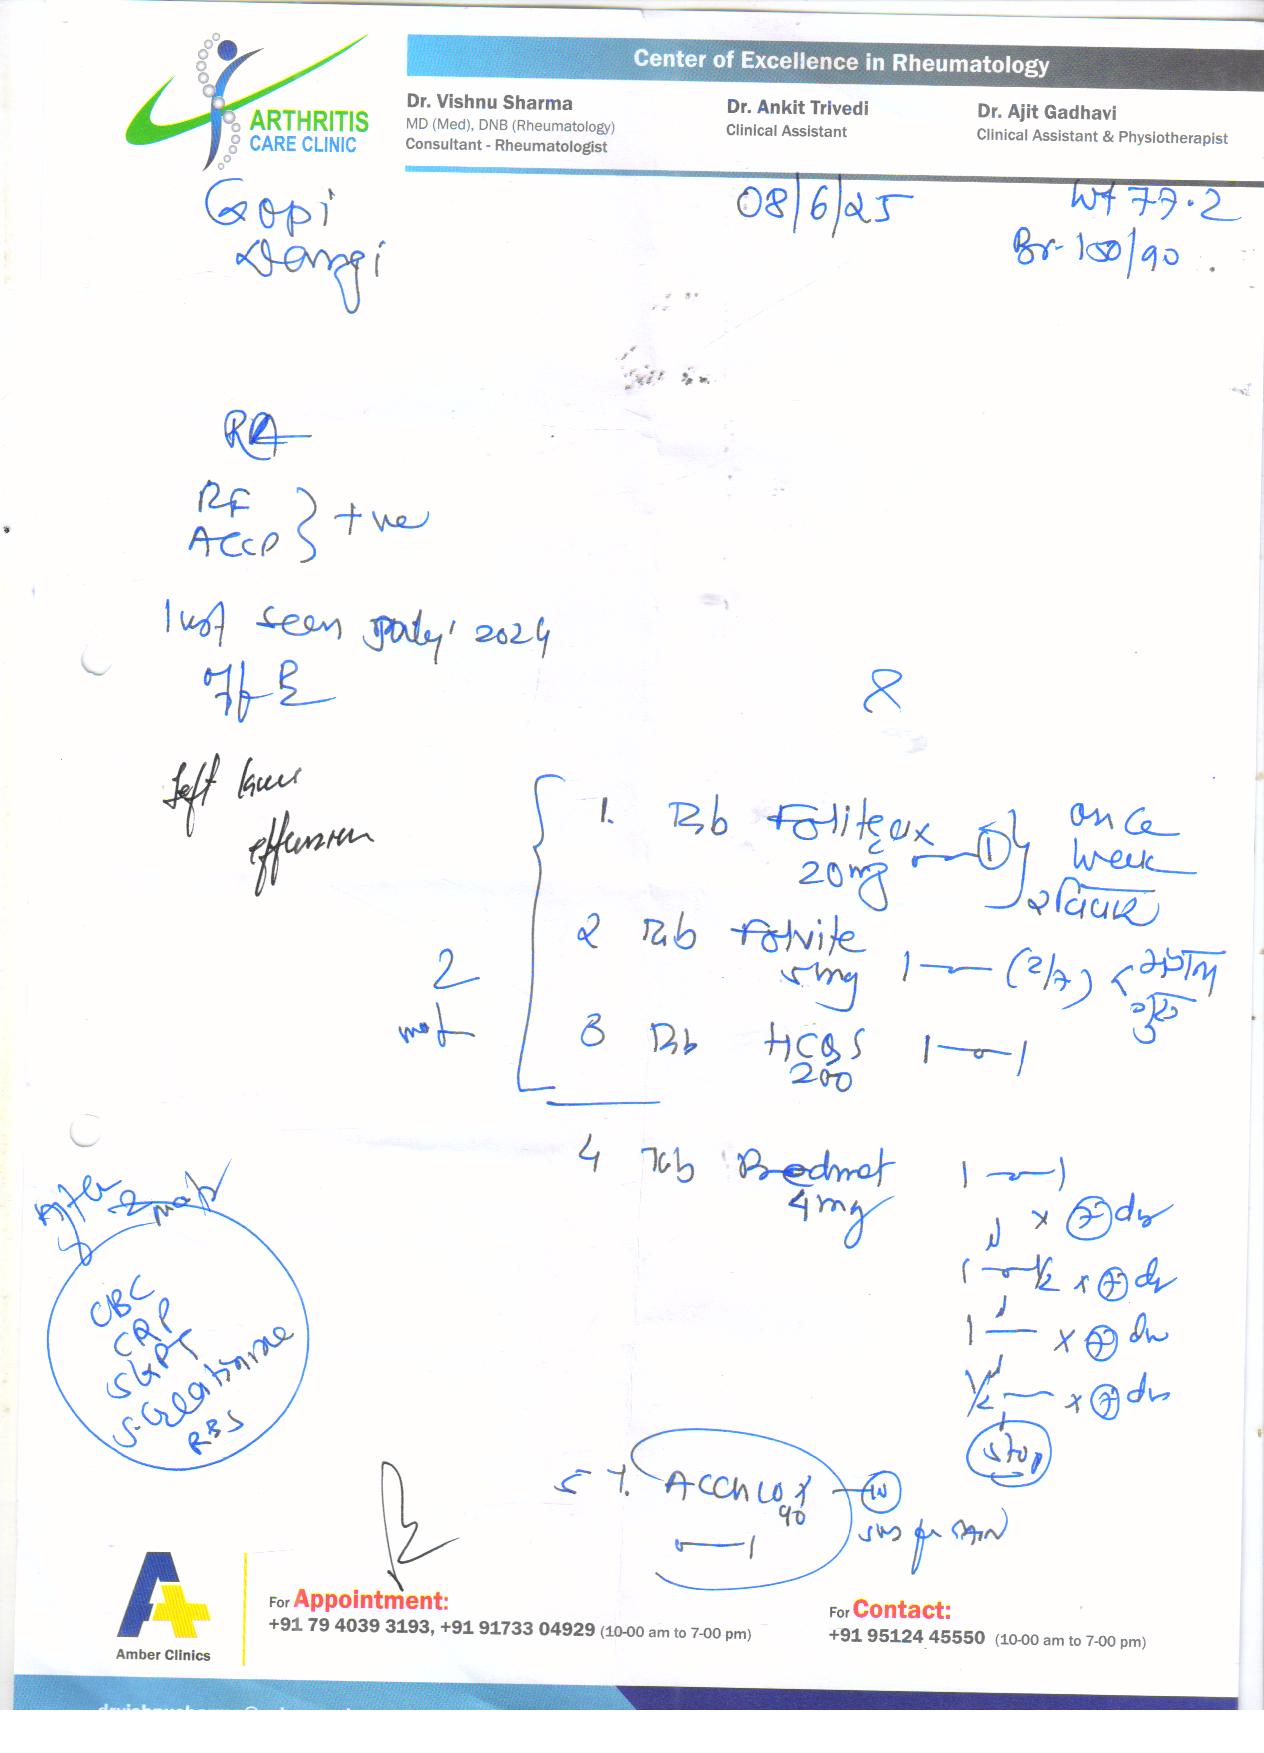 ARTHRITIS
CARE CLINIC
Center of Excellence in Rheumatology
Dr. Vishnu Sharma
MD (Med), DNB (Rheumatology)
Consultant - Rheumatologist
Dr. Ankit Trivedi
Clinical Assistant
Dr. Ajit Gadhavi
Clinical Assistant & Physiotherapist
Gopi
Dangi
08/6/25
Wt 77.2
/90
RA
RF
ACCP } +ve
last seen July' 2024
off
Left knee
effusion
2
1. Tab Folitrax
20mg
1
once
week
रविवार
2 Tab Folvite
5mg
1 (2/7)
3 Tab HCQS
200
1 — 0 — 1
4 Tab Predmet
4mg
1 — 1
x 7 ds
1 — 1/2 x 7 ds
1 — x 7 ds
1/2 — x 7 ds
stop
After 2
CBC
CRP
SGPT
S. Creatinine
RBS
5 T.
90
SOS for PAIN
Amber Clinics
For Appointment:
+91 79 4039 3193, +91 91733 04929 (10-00 am to 7-00 pm)
For Contact:
+91 95124 45550 (10-00 am to 7-00 pm)